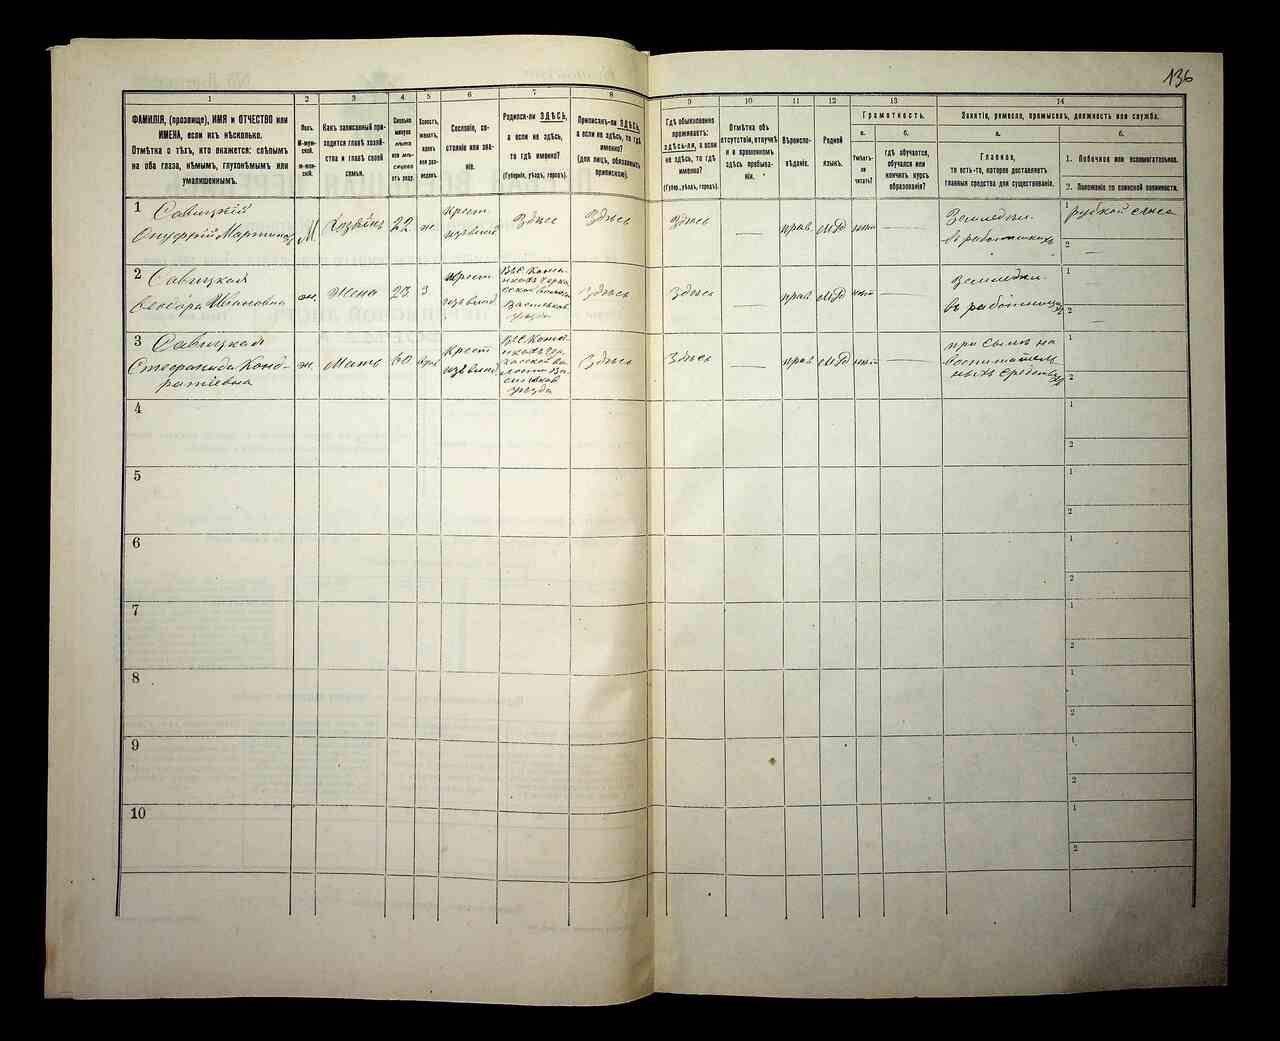 136
1
2
3
4
5
6
7
8
9
10
11
12
13
14
ФАМИЛІЯ, (прозвище), ИМЯ и ОТЧЕСТВО или
ИМЕНА, если ихъ нѣсколько.
Отмѣтка о тѣхъ, кто окажется: слѣпымъ
на оба глаза, нѣмымъ, глухонѣмымъ или
умалишеннымъ.
Полъ.
М-муж-
ской.
ж-жен-
скій.
Какъ записанный при-
ходится главѣ хозяй-
ства и главѣ своей
семьи.
Сколько
минуло
лѣтъ
или мѣ-
сяцевъ
отъ роду.
Холостъ,
женатъ,
вдовъ
или раз-
веденъ.
Сословіе, со-
стояніе или зва-
ніе.
Родился-ли ЗДѢСЬ,
а если не здѣсь,
то гдѣ именно?
(Губернія, уѣздъ, городъ).
Приписанъ-ли ЗДѢСЬ,
а если не здѣсь, то гдѣ
именно?
(для лицъ, обязанныхъ
припискою).
Гдѣ обыкновенно
проживаетъ:
здѣсь-ли, а если
не здѣсь, то гдѣ
именно?
(Губер.,уѣздъ, городъ).
Отмѣтка объ
отсутствіи, отлучкѣ
и о временномъ
здѣсь пребыва-
ніи.
Вѣроиспо-
вѣданіе.
Родной
языкъ.
Грамотность.
а.
б.
Умѣетъ-
ли
читать?
гдѣ обучается,
обучался или
кончилъ курсъ
образованія?
Занятіе, ремесло, промыселъ, должность или служба.
а.
б.
Главное,
то есть-то, которое доставляетъ
главныя средства для существованія.
1. Побочное или вспомогательное.
2. Положеніе по воинской повинности.
1 Савицкій
Онуфрій Мартинов
М
Хозяинъ
22
ж.
Крест.
изъ влад
Здѣсь
Здѣсь
Здѣсь
—
прав.
МР
нѣт
—
Земледѣл.
въ работникахъ
1 рубкой лѣса
2 —
2 Савицкая
Ивановна
ж.
Жена
23
З
Крест.
изъ влад
Васильков
уѣзда
Здѣсь
Здѣсь
—
прав
МР
нѣт
—
Земледѣл.
въ работницах
1
2 —
3 Савицкая
Стефанида Конд-
ратіевна
ж.
Мать
60
вдов
Крест
изъ влад
уѣзда
Здѣсь
Здѣсь
—
прав
МР
нѣт
—
при сынѣ на
ныхъ средствах
1
2
4
1
2
5
1
2
6
1
2
7
1
2
8
1
2
9
1
2
10
1
2